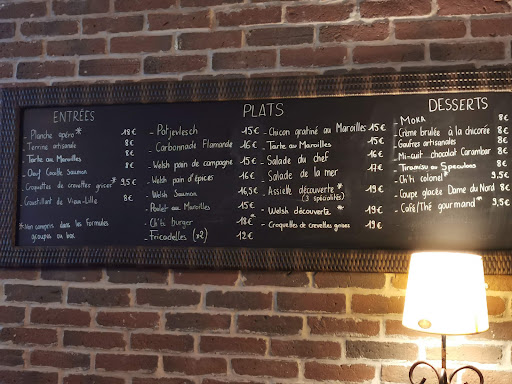 ENTRÉES
- Planche apéro* 18€
- Terrine artisanale 8€
- Tarte au Maroilles 8€
- Oeuf Cocotte Saumon 8€
- Croquettes de crevettes grises* 9,5€
- Gourmillant de Vieux-Lille 8€
*Non compris dans les formules groupes ou box
PLATS
- Potjevlesch 15€
- Carbonnade Flamande 16€
- Welsh pain de campagne 15€
- Welsh pain d'épices 16€
- Welsh Saumon 16,5€
- Poulet au Maroilles 15€
- Ch'ti burger 18€*
- Fricadelles (x2) 12€
- Chicon gratiné au Maroilles 15€
- Tarte au Maroilles 15€
- Salade du chef 15€
- Salade de la mer 17€
- Assiette découverte* 19€
(3 spécialités)
- Welsh découverte* 19€
- Croquettes de crevettes grises 19€
DESSERTS
- Moka 8€
- Crème brulée à la chicorée 8€
- Gaufres artisanales 8€
- Mi-cuit chocolat Carambar 8€
- Tiramisu au Speculoos 8€
- Ch'ti colonel* 9,5€
- Coupe glacée Dame du Nord 8€
- Café/Thé gourmand* 9,5€